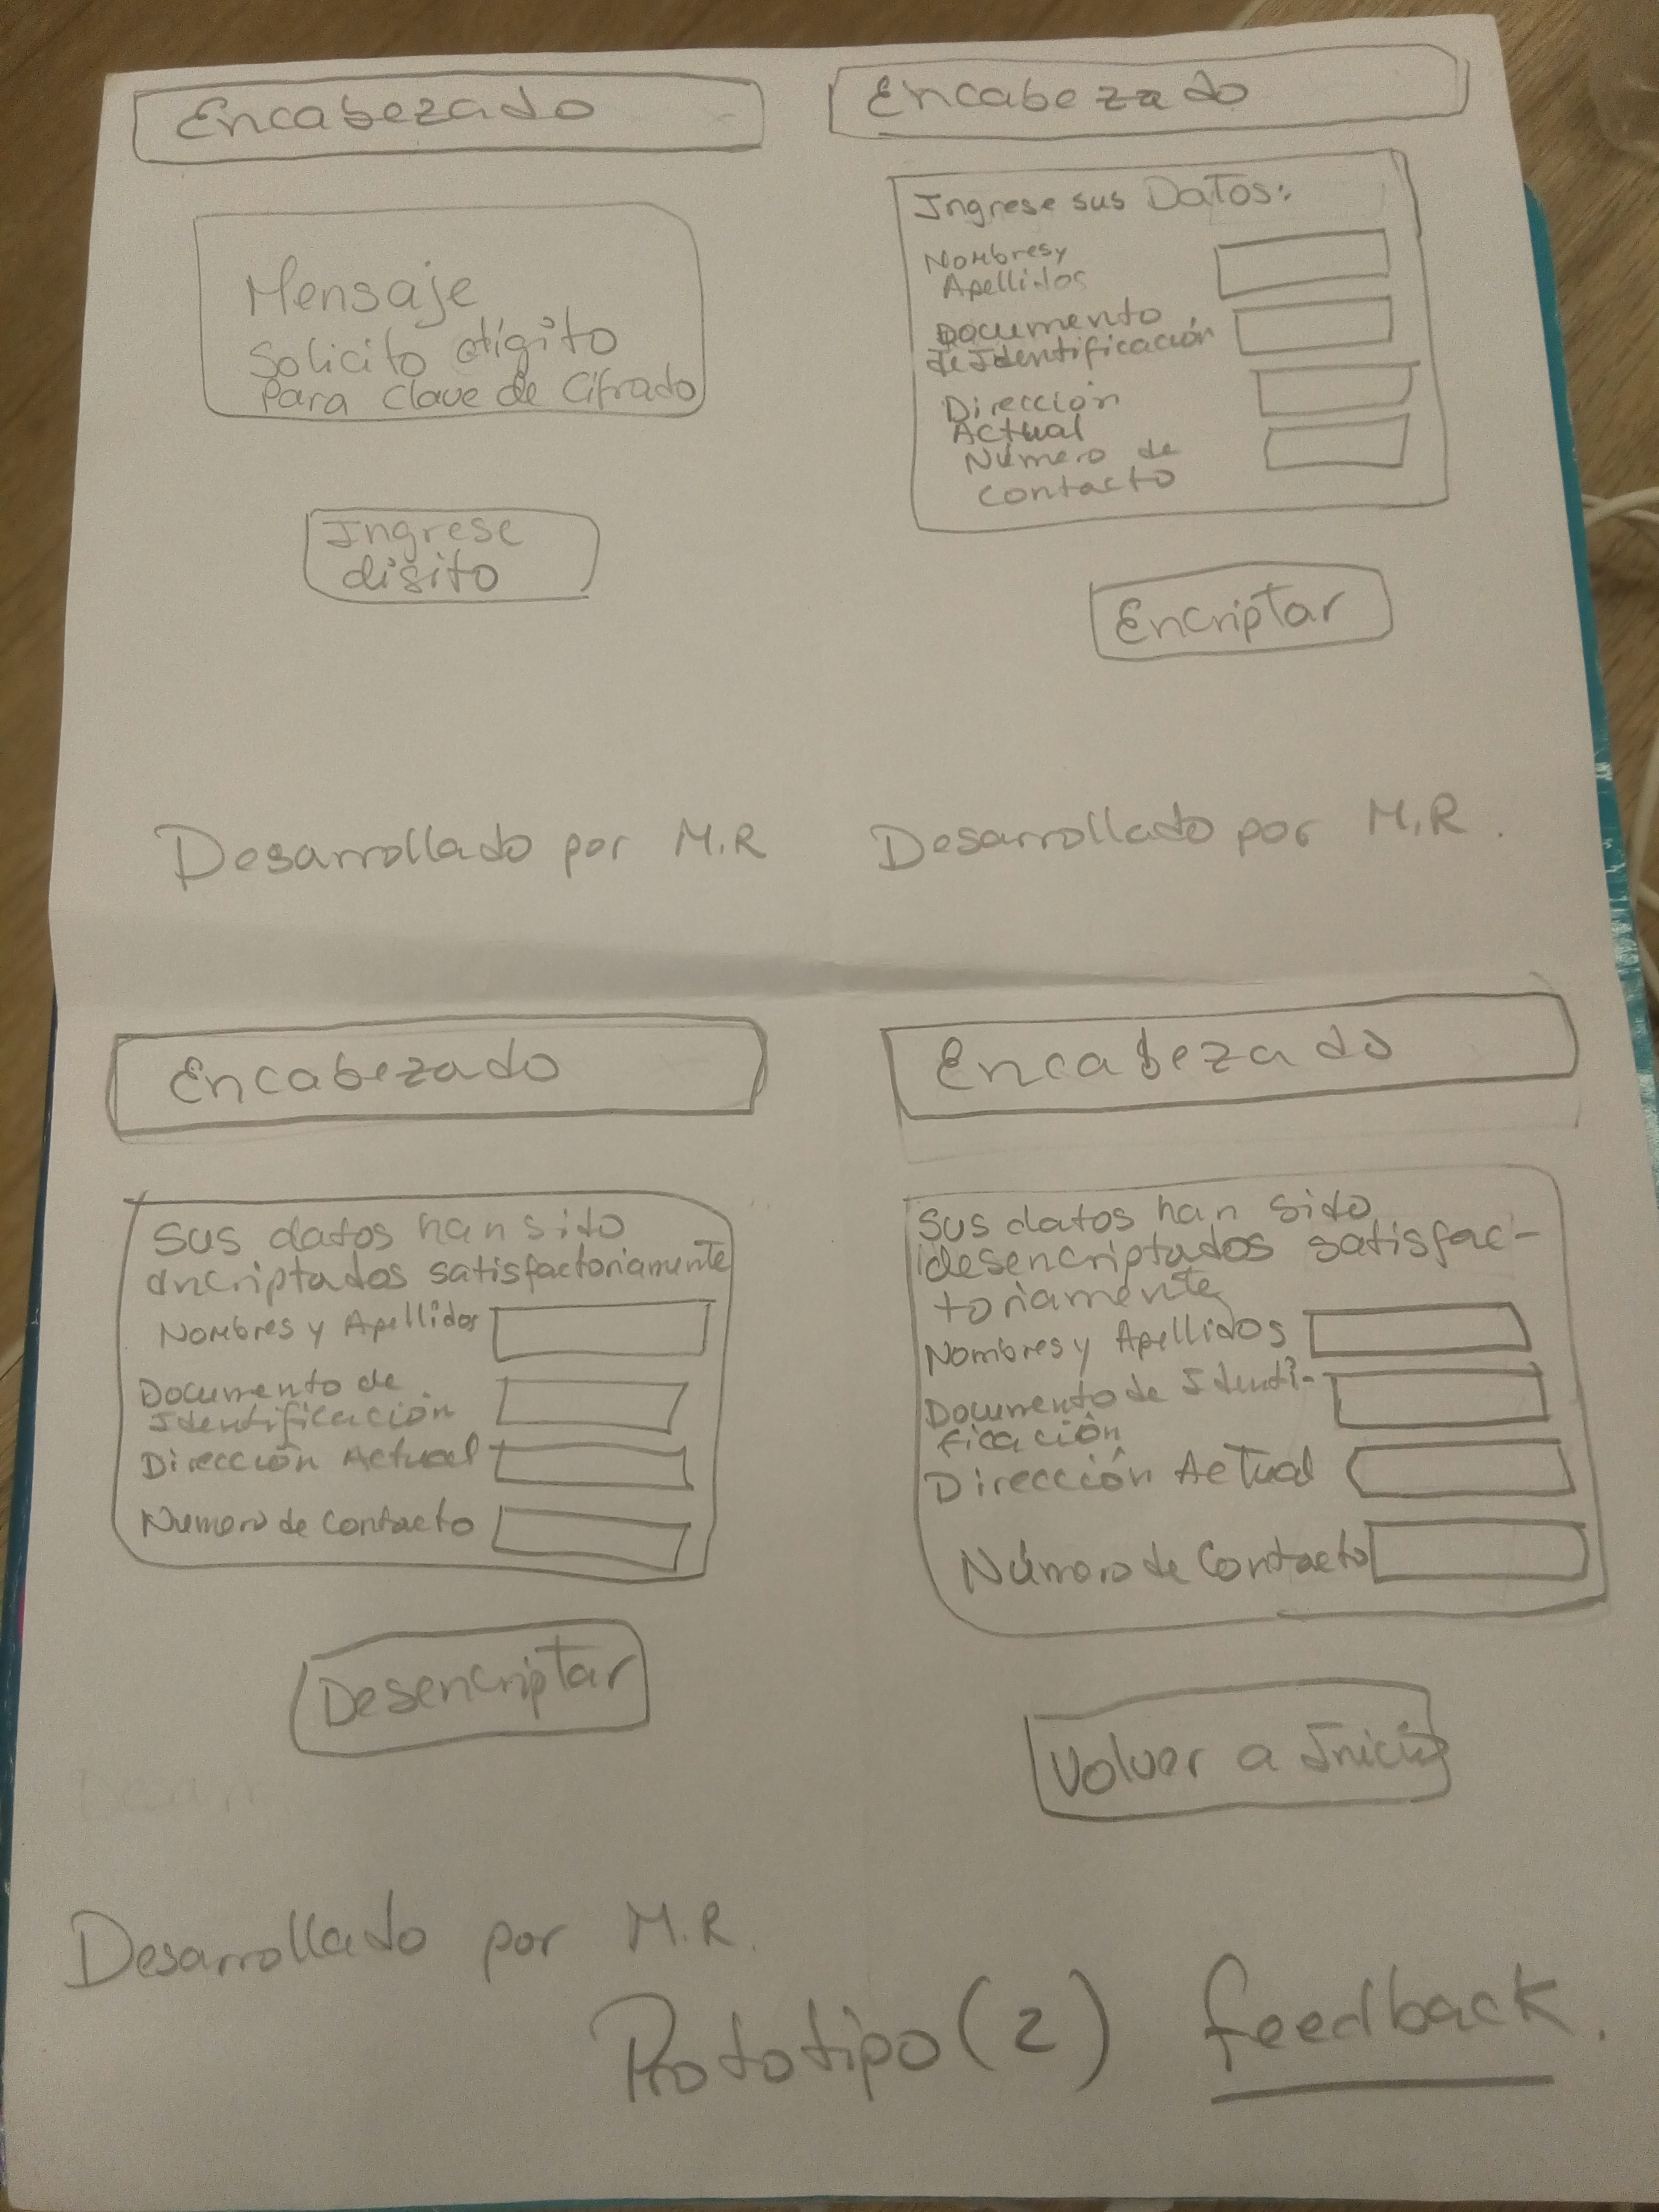 Encabezado
Mensaje
Solicito dígito
Para Clave de Cifrado
Ingrese
digito
Desarrollado por M.R
Encabezado
Ingrese sus Datos:
Nombres y
Apellidos
Documento
de Identificación
Dirección
Actual
Número de
Contacto
Encriptar
Desarrollado por M.R.
Encabezado
Sus datos han sido
encriptados satisfactoriamente
Nombres y Apellidos
Documento de
Identificación
Dirección Actual
Numero de Contacto
Desencriptar
Desarrollado por M.R.
Encabezado
Sus datos han sido
desencriptados satisfac-
toriamente
Nombres y Apellidos
Documento de Identi-
ficación
Dirección Actual
Número de Contacto
Volver a Inicio
Prototipo (2) feedback.